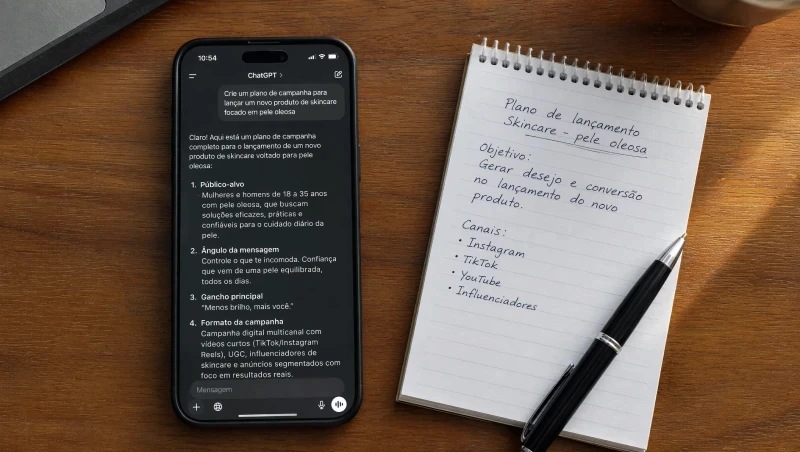 10:54
ChatGPT >
Crie um plano de campanha para
lançar um novo produto de skincare
focado em pele oleosa
Claro! Aqui está um plano de campanha
completo para o lançamento de um novo
produto de skincare voltado para pele
oleosa:
1. Público-alvo
Mulheres e homens de 18 a 35 anos
com pele oleosa, que buscam
soluções eficazes, práticas e
confiáveis para o cuidado diário da
pele.
2. Ângulo da mensagem
Controle o que te incomoda. Confiança
que vem de uma pele equilibrada,
todos os dias.
3. Gancho principal
“Menos brilho, mais você.”
4. Formato da campanha
Campanha digital multicanal com
vídeos curtos (TikTok/Instagram
Reels), UGC, influenciadores de
skincare e anúncios segmentados com
foco em resultados reais.
Mensagem
Plano de lançamento
Skincare - pele oleosa
Objetivo:
Gerar desejo e conversão
no lançamento do novo
produto.
Canais:
• Instagram
• TikTok
• YouTube
• Influenciadores